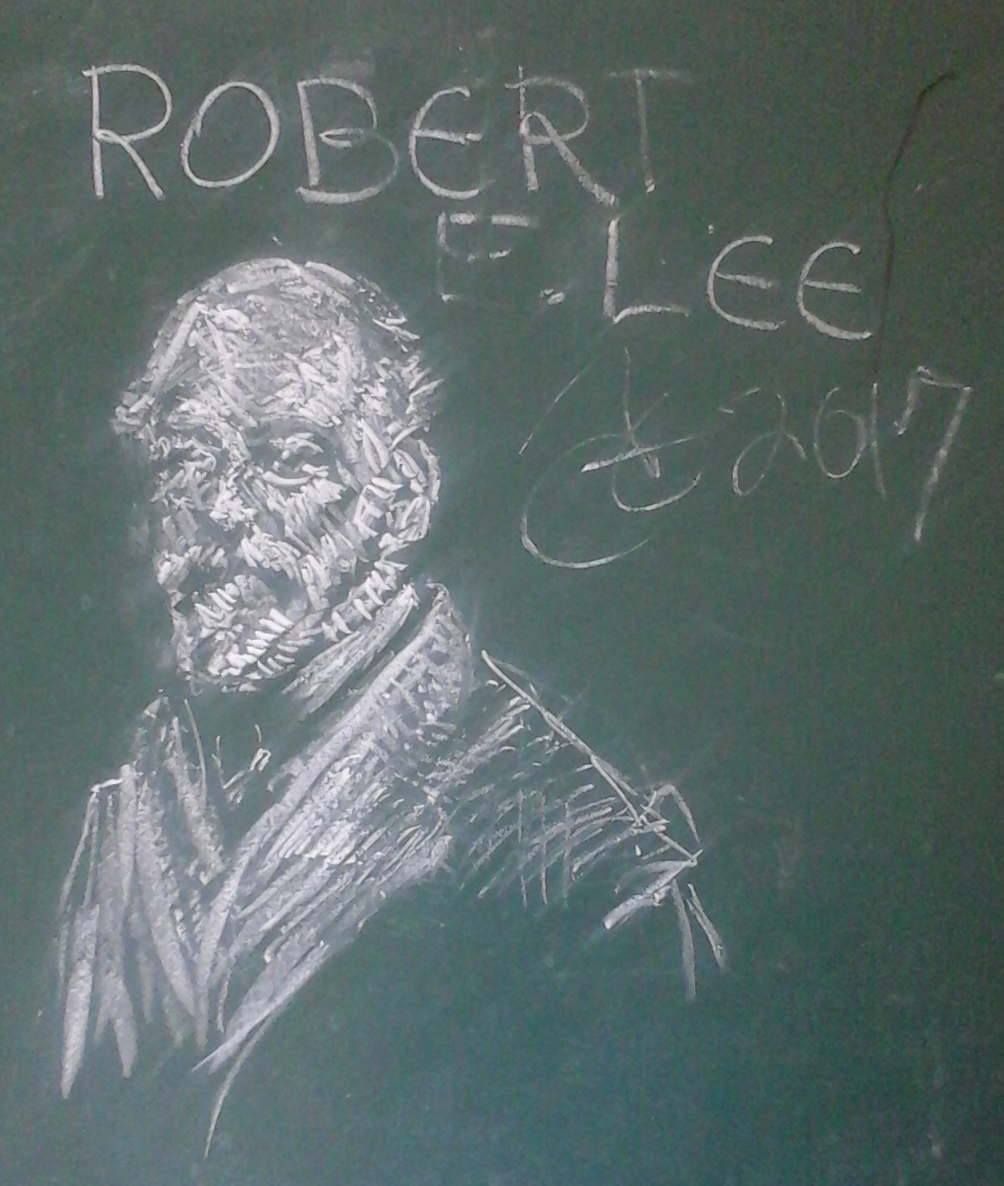 ROBERT
E. LEE
2017